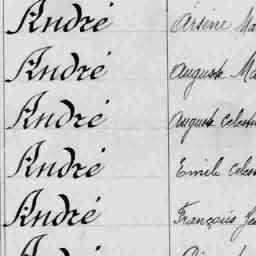 André Arsène Ma
André Auguste Ma
André Auguste Celestin
André Emile Celes
André François Je
André